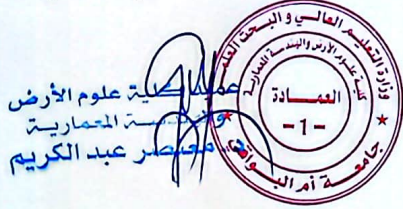 عميد كلية علوم الأرض
والهندسة المعمارية
معتصر عبد الكريم
وزارة التعليم العالي و البحث العلمي
كلية علوم الأرض والهندسة المعمارية
العمادة
-1-
جامعة أم البواقي